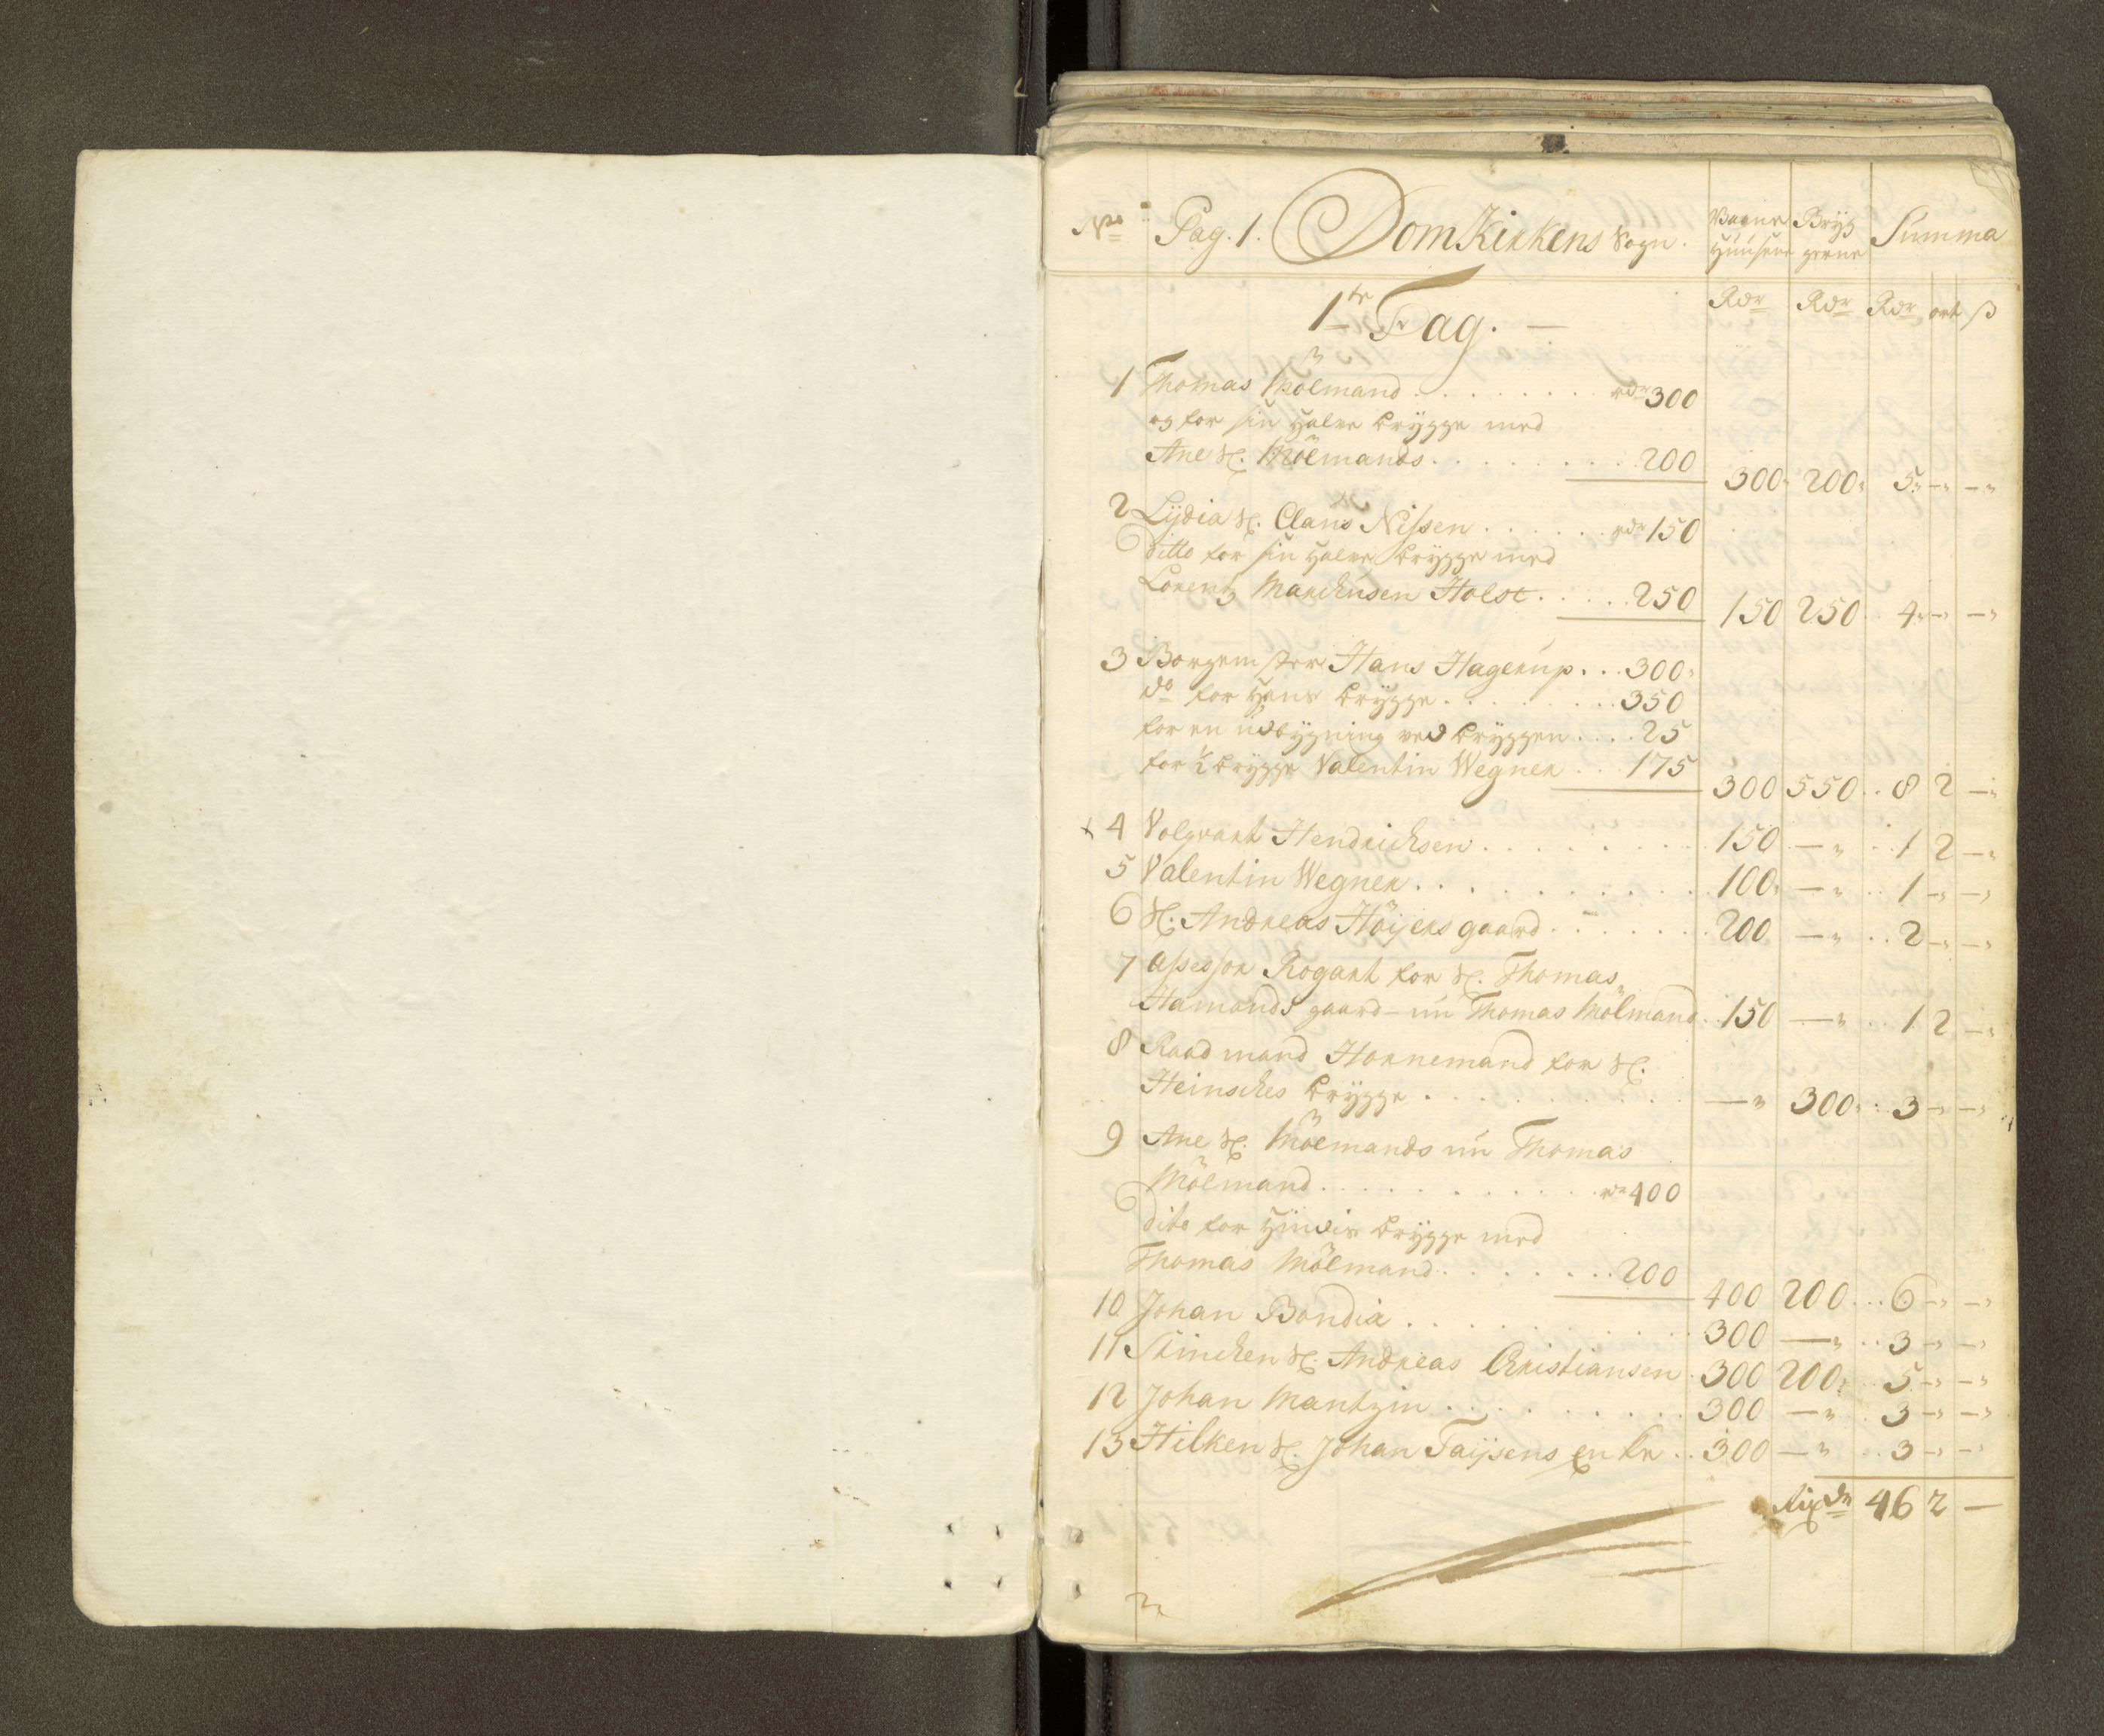 No Pag. 1. DomKirkens Sogn. Vaane Huusene Bryg gerne Summa
1te Fag. — Rdr Rdr Rdr ort ß
1 Thomas Mölmand . . . . . . . . rdr 300
og for sin halve brygge med
Ane Sl. Mölmands . . . . . . . . 200 300 200 5 — —
2 Lydia Sl. Claus Nissen . . . . . . rdr 150
ditto for sin halve brygge med
Lorentz Marchusen Holst . . . . . 250 150 250 4 — —
3 Borgemster Hans Hagerup . . . 300
do for Hans brygge . . . . . . . 350
for en udbygning ved bryggen . . . . 25
for ½ brygge Valentin Wegner . . . 175 300 550 8 2 —
4 Volqvart Hendrichsen . . . . . . . . 150 — 1 2 —
5 Valentin Wegner . . . . . . . . . . 100 — 1 — —
6 Sl. Andreas Höyers gaard . . . . . . . 200 — 2 — —
7 Assessor Rogart for Sl. Thomas
Hamonds gaard — nu Thomas Mölmand 150 — 1 2 —
8 Raadmand Hornemand for Sl.
Heinsches brygge . . . . . . . . . — 300 3 — —
9 Ane Sl. Mölmands nu Thomas
Mölmand . . . . . . . . . . rdr 400
dito for Hindis brygge med
Thomas Mölmand . . . . . . . 200 400 200 6 — —
10 Johan Bondia . . . . . . . . . . 300 — 3 — —
11 Stinchen Sl. Andreas Christiansen 300 200 5 — —
12 Johan Mantzin . . . . . . . . . 300 — 3 — —
13 Hilken Sl. Johan Taysens Enke . . 300 — 3 — —
Rixdr 46 2 —